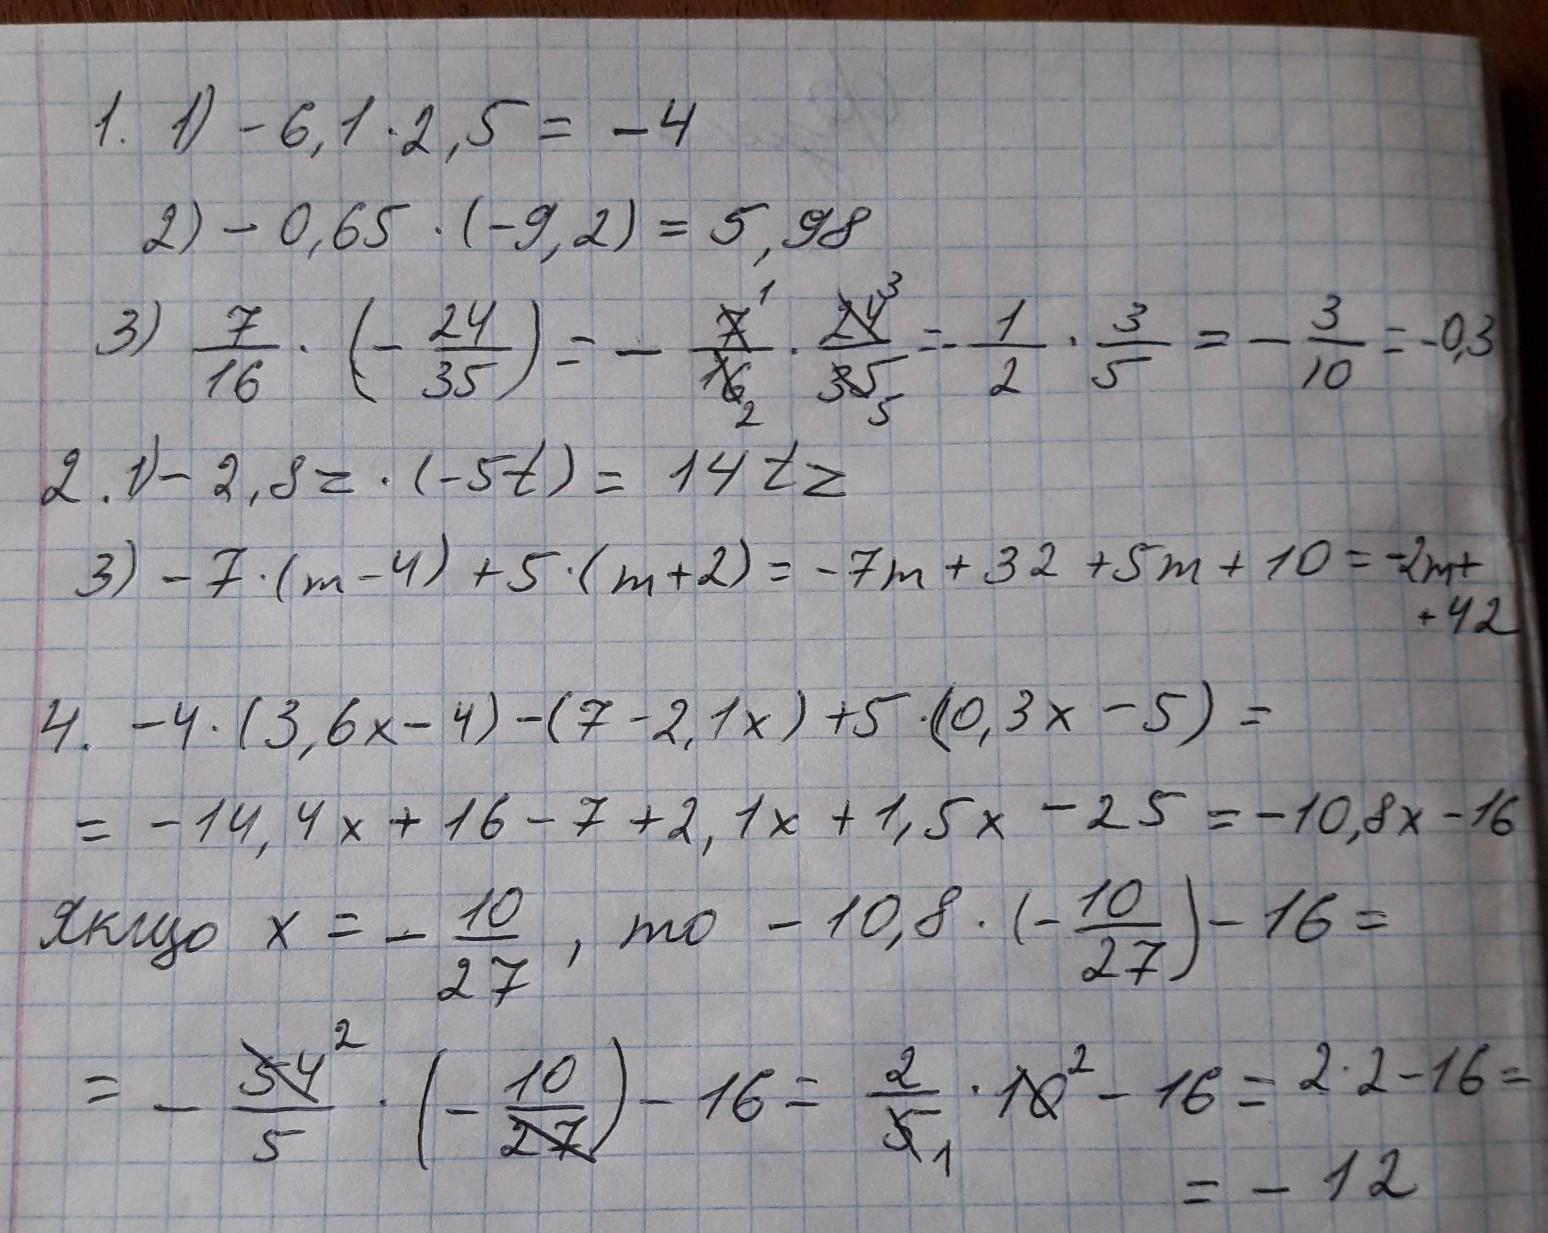 1. 1) - 6,1 · 2,5 = - 4
2) - 0,65 · (-9,2) = 5,98
3) 7/16 · (- 24/35) = - 7/16 · 24/35 = - 1/2 · 3/5 = - 3/10 = -0,3
2. 1) - 2,8z · (-5t) = 14tz
3) - 7 · (m - 4) + 5 · (m + 2) = -7m + 32 + 5m + 10 = -2m +
+ 42
4. -4 · (3,6x - 4) - (7 - 2,1x) + 5 · (0,3x - 5) =
= -14,4x + 16 - 7 + 2,1x + 1,5x - 25 = -10,8x - 16
Якщо x = - 10/27, то - 10,8 · (- 10/27) - 16 =
= - 54/5 · (- 10/27) - 16 = 2/5 · 10 - 16 = 2 · 2 - 16 =
= - 12